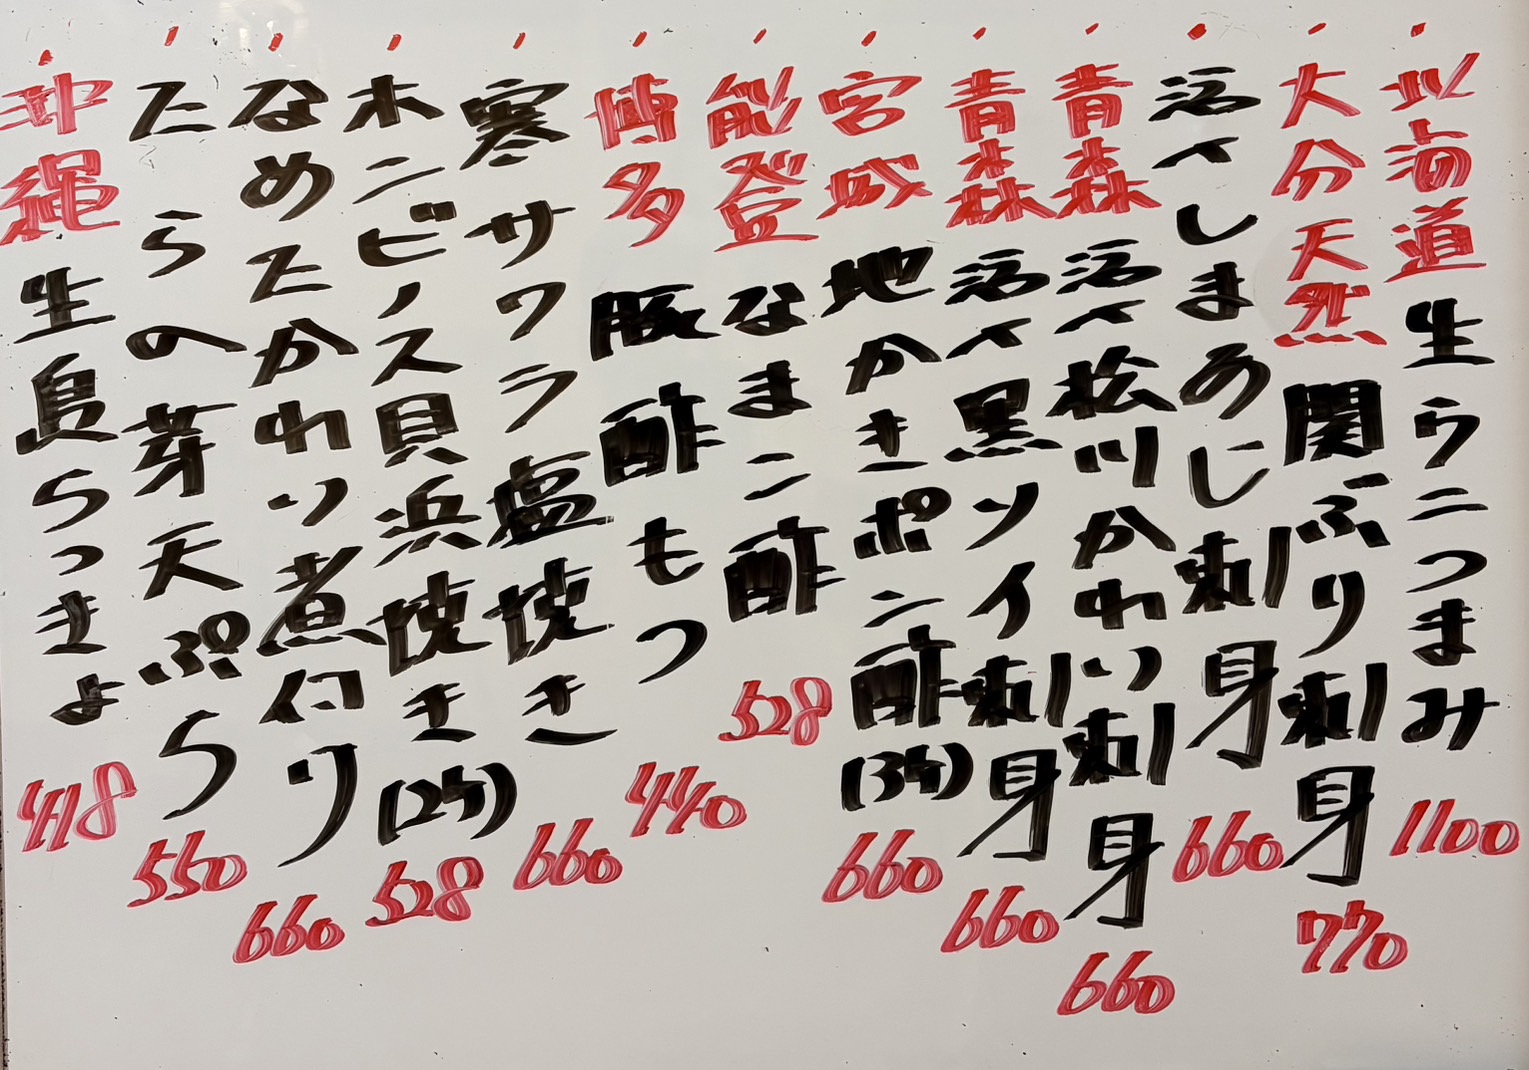 ・北海道 生ウニつまみ 1100
・大分天然 関ぶり刺身 770
・活〆しまあじ刺身 660
・青森 活〆松川かれい刺身 660
・青森 活〆黒ソイ刺身 660
・宮城 地かきポン酢(3ヶ) 660
・能登 なまこ酢 528
・博多 豚酢もつ 440
・寒サワラ塩焼き 660
・ホンビノス貝浜焼き(2ヶ) 528
・なめたかれい煮付け 660
・たらの芽天ぷら 550
・沖縄 生島らっきょ 418